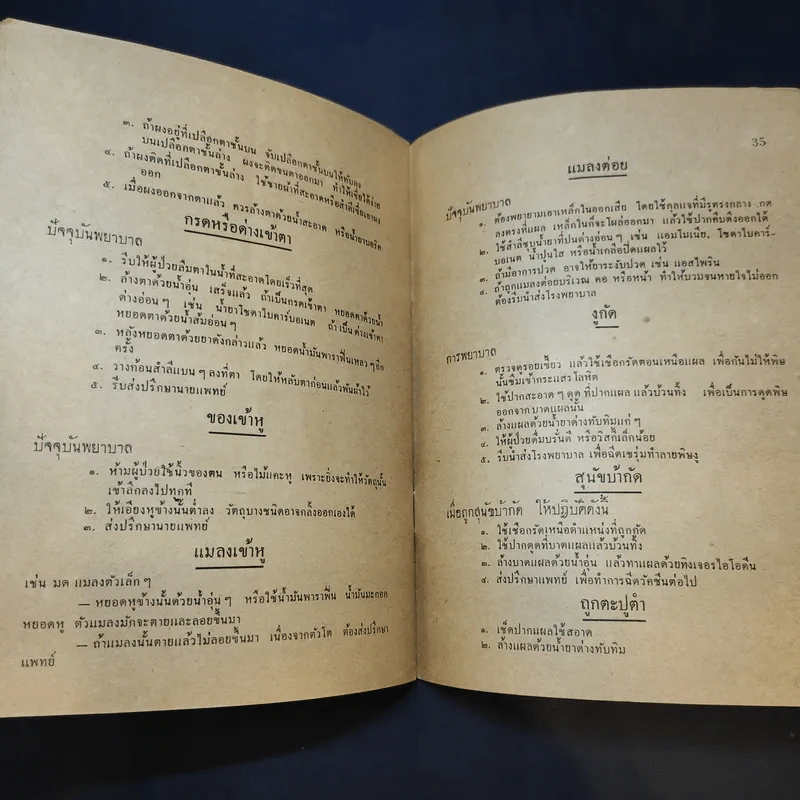 ๓. ถ้าผงอยู่ที่เปลือกตาชั้นบน จับเปลือกตาชั้นบนให้ทับลง
บนเปลือกตาชั้นล่าง ผงจะติดขนตาออกมา ทำให้เขี่ยได้ง่าย
๔. ถ้าผงติดที่เปลือกตาชั้นล่าง ใช้ชายผ้าที่สะอาดหรือสำลีเขี่ยเอาผง
ออก
๕. เมื่อผงออกจากตาแล้ว ควรล้างตาด้วยน้ำสะอาด หรือน้ำยาบอริค
กรดหรือด่างเข้าตา
ปัจจุบันพยาบาล
๑. รีบให้ผู้ป่วยลืมตาในน้ำที่สะอาดโดยเร็วที่สุด
๒. ล้างตาด้วยน้ำอุ่น เสร็จแล้ว ถ้าเป็นกรดเข้าตา หยอดตาด้วยน้ำ
ด่างอ่อนๆ เช่น น้ำยาโซดาไบคาร์บอเนต ถ้าเป็นด่างเข้าตา
หยอดตาด้วยน้ำส้มอ่อนๆ
๓. หลังหยอดตาด้วยยาดังกล่าวแล้ว หยอดน้ำมันพาราฟินเหลวๆอีก
ครั้ง
๔. วางก้อนสำลีแบนๆลงที่ตา โดยให้หลับตาก่อนแล้วพันผ้าไว้
๕. รีบส่งปรึกษานายแพทย์
ของเข้าหู
ปัจจุบันพยาบาล
๑. ห้ามผู้ป่วยใช้นิ้วของตน หรือไม้แคะหู เพราะยิ่งจะทำให้วัตถุนั้น
เข้าลึกลงไปทุกที
๒. ให้เอียงหูข้างนั้นต่ำลง วัตถุบางชนิดอาจกลิ้งออกเองได้
๓. ส่งปรึกษานายแพทย์
แมลงเข้าหู
เช่น มด แมลงตัวเล็กๆ
— หยอดหูข้างนั้นด้วยน้ำอุ่นๆ หรือใช้น้ำมันพาราฟิน น้ำมันมะกอก
หยอดหู ตัวแมลงมักจะตายและลอยขึ้นมา
— ถ้าแมลงนั้นตายแล้วไม่ลอยขึ้นมา เนื่องจากตัวโต ต้องส่งปรึกษา
แพทย์
35
แมลงต่อย
ปัจจุบันพยาบาล
๑. ต้องพยายามเอาเหล็กในออกเสีย โดยใช้กุลแจที่มีรูตรงกลาง กด
ลงตรงที่แผล เหล็กในก็จะโผล่ออกมา แล้วใช้ปากคีบดึงออกได้
๒. ใช้สำลีชุบน้ำยาที่ปนด่างอ่อนๆ เช่น แอมโมเนีย, โซดาไบคาร์-
บอเนต น้ำปูนใส หรือน้ำเกลือปิดแผลไว้
๓. ถ้ามีอาการปวด อาจให้ยาระงับปวด เช่น แอสไพริน
๔. ถ้าถูกแมลงต่อยบริเวณ คอ หรือหน้า ทำให้บวมจนหายใจไม่ออก
ต้องรีบนำส่งโรงพยาบาล
งูกัด
การพยาบาล
๑. ตรวจดูรอยเขี้ยว แล้วใช้เชือกรัดตอนเหนือแผล เพื่อกันไม่ให้พิษ
นั้นซึมเข้ากระแสร์โลหิต
๒. ใช้ปากสะอาดๆ ดูด ที่ปากแผล แล้วบ้วนทิ้ง เพื่อเป็นการดูดพิษ
ออกจากบาดแผลนั้น
๓. ล้างแผลด้วยน้ำยาด่างทับทิมแก่ๆ
๔. ให้ผู้ป่วยดื่มบรั่นดี หรือวิสกี้เล็กน้อย
๕. รีบนำส่งโรงพยาบาล เพื่อฉีดเซรุ่มทำลายพิษงู
สุนัขบ้ากัด
เมื่อถูกสุนัขบ้ากัด ให้ปฏิบัติดังนี้
๑. ใช้เชือกรัดเหนือตำแหน่งที่ถูกกัด
๒. ใช้ปากดูดที่บาดแผลแล้วบ้วนทิ้ง
๓. ล้างบาดแผลด้วยน้ำอุ่น แล้วทาแผลด้วยทิงเจอร์ไอโอดีน
๔. ส่งปรึกษาแพทย์ เพื่อทำการฉีดวัคซีนต่อไป
ถูกตะปูตำ
๑. เช็ดปากแผลใช้สอาด
๒. ล้างแผลด้วยน้ำยาด่างทับทิม